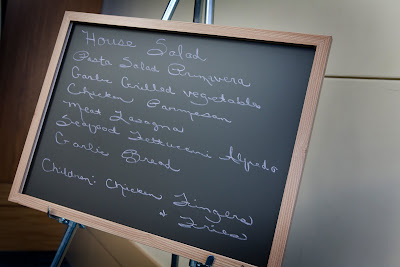 House Salad
Pasta Salad Primivera
Garlic Grilled vegetables
Chicken Parmesan
Meat Lasagna
Seafood Fettuccini Alfredo
Garlic Bread
Children: Chicken Fingers
& Fries